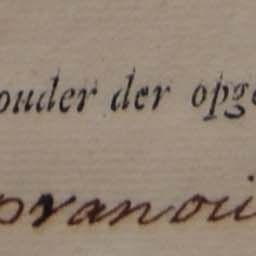 ouder der opge
pranoui